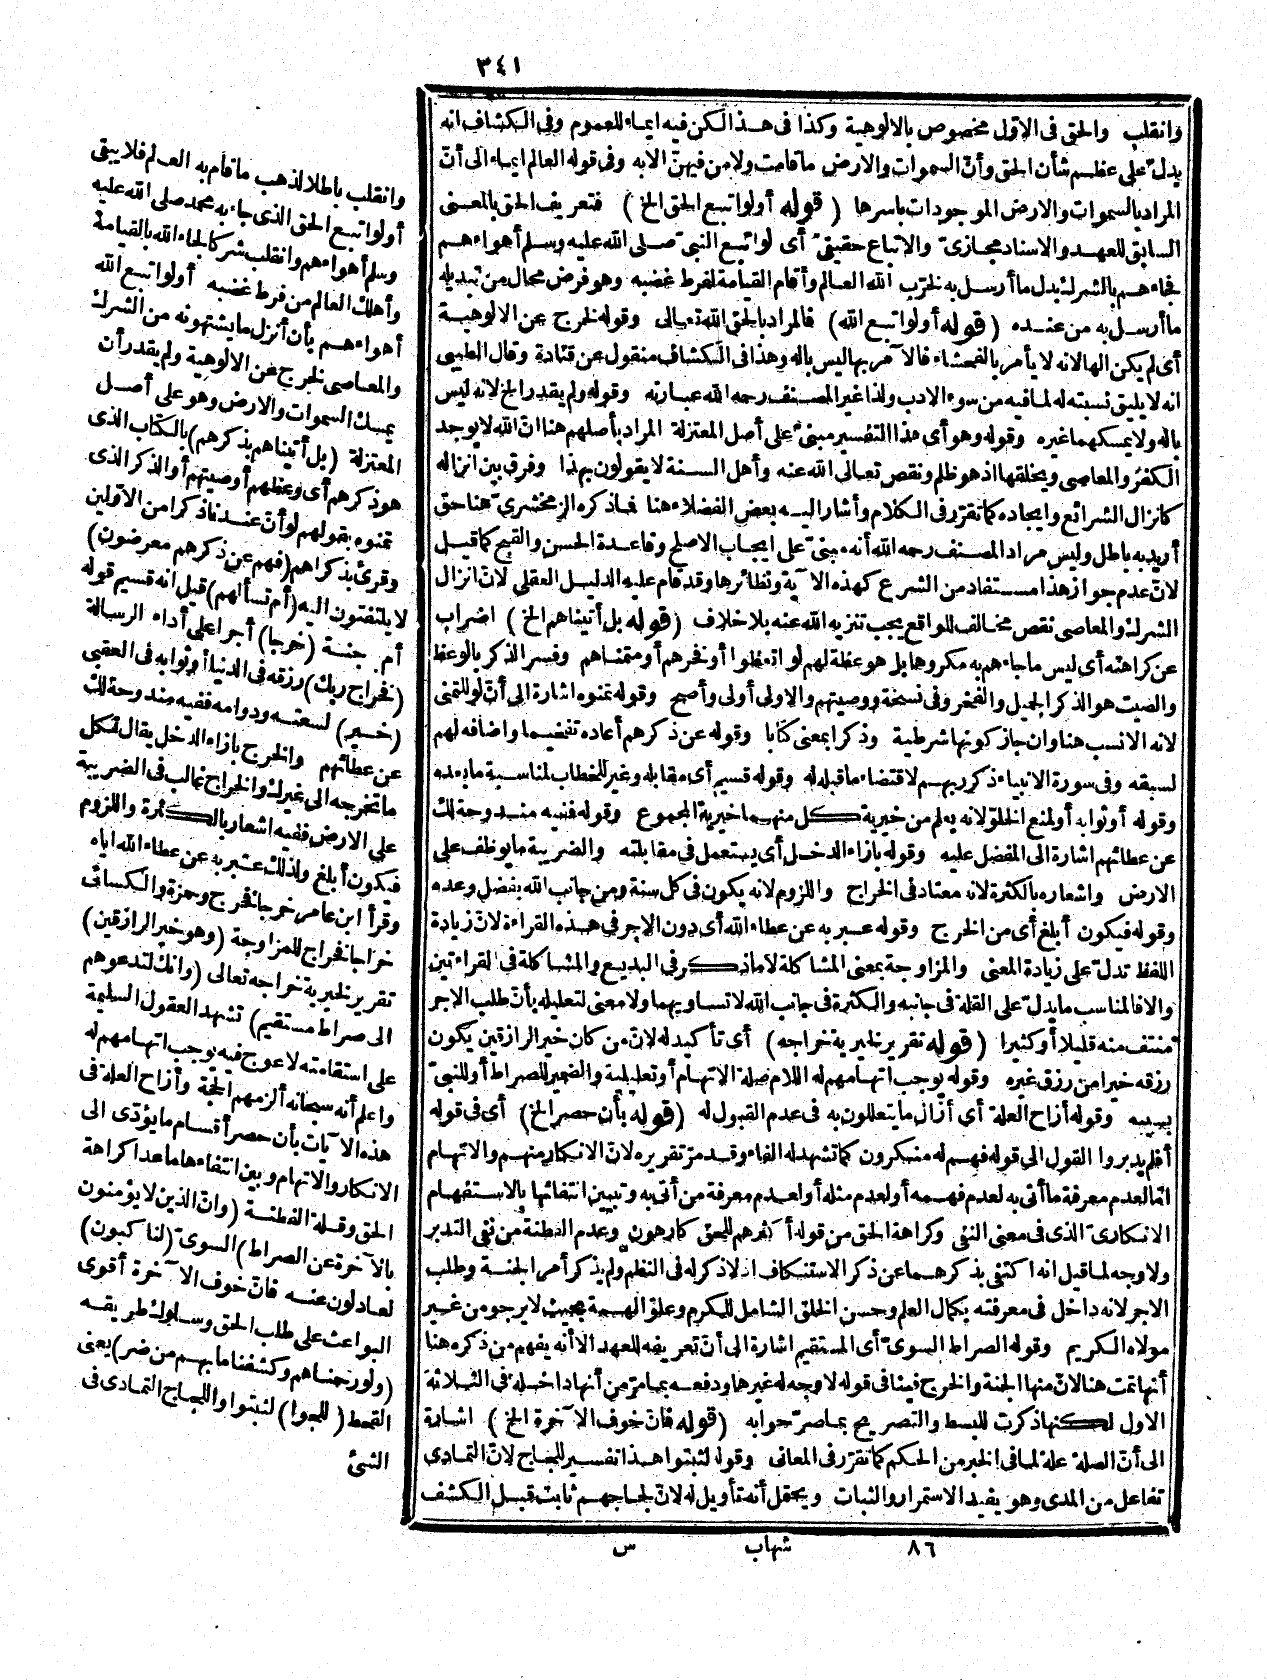 ٣٤١
وانقلب والحق فى الاوّل مخصوص بالالوهية وكذا فى هـذا لكن فيه ايماء للعموم وفى الكشاف انه
يدلّ على عظم شأن الحق وأنّ السموات والارض ما قامت ولا من فيهنّ الا به وفى قوله العالم ايماء الى أنّ
المراد بالسموات والارض الموجودات باسرها (قوله أولو اتبع الحق الخ) فتعريف الحق بالمعنى
السابق للعهد والاسناد مجازىّ والاتباع حقيقىّ أى لو اتبع النبىّ صلى الله عليه وسلم أهواءهم
فجاءهم بالشرك بدل ما أرسل به لخرّب الله العالم وأقام القيامة لفرط غضبه وهو فرض محال من تبديله
ما أرسل به من عنده (قوله أولو اتبع الله) فالمراد بالحق الله تعالى وقوله لخرج عن الالوهية
أى لم يكن الها لانه لا يأمر بالفحشاء فالآمر بها ليس باله وهذا فى الكشاف منقول عن قتادة وقال الطيبى
انه لا يليق نسبته له لما فيه من سوء الادب ولذا غير المصنف رحمه الله عبارته وقوله ولم يقدر الخ لانه ليس
باله ولا يمسكهما غيره وقوله وهو أى هذا التفسير مبنىّ على أصل المعتزلة المراد بأصلهم هنا انّ الله لا يوجد
الكفر والمعاصى ويخلقها اذ هو ظلم ونقص تعالى الله عنه وأهل السنة لا يقولون بهذا وفرق بين انزاله
كانزال الشرائع وايجاده كما تقرّر فى الكلام وأشار اليه بعض الفضلاء هنا فما ذكره الزمخشرىّ هنا حق
أريد به باطل وليس مراد المصنف رحمه الله أنه مبنىّ على ايجاب الاصلح وقاعدة الحسن والقبح كما قيل
لانّ عدم جواز هذا مستفاد من الشرع كهذه الآية ونظائرها وقد قام عليه الدليل العقلى لانّ انزال
الشرك والمعاصى نقص مخالف للواقع يجب تنزيه الله عنه بلا خلاف (قوله بل أتيناهم الخ) اضراب
عن كراهته أى ليس ما جاءهم به مكروها بل هو عظة لهم لو اتعظوا أو فخرهم أو متمناهم وفسر الذكر بالوعظ
والصيت هو الذكر الجميل والفخر وفى نسخة ووصيتهم والاولى أولى وأصح وقوله تمنوه اشارة الى أنّ لو للتمنى
لانه الانسب هنا وان جاز كونها شرطية وذكرا بمعنى كتابا وقوله عن ذكرهم أعاده تفخيما واضافه لهم
لسبقه وفى سورة الانبياء ذكر ربهم لاقتضاء ما قبله له وقوله قسيم أى مقابله وغير للخطاب لمناسبة ما بعده
وقوله أو ثوابه أو لمنع الخلوّ لانه يعلم من خيرية كل منهما خيرية المجموع وقوله ففيه مندوحة لك
عن عطائهم اشارة الى المفضل عليه وقوله بازاء الدخل أى يستعمل فى مقابلته والضريبة ما يوظف على
الارض واشعاره بالكثرة لانه معتاد فى الخراج واللزوم لانه يكون فى كل سنة ومن جانب الله بفضل وعده
وقوله فيكون أبلغ أى من الخرج وقوله عبر به عن عطاء الله أى دون الاجر فى هذه القراءة لانّ زيادة
اللفظ تدلّ على زيادة المعنى والمزاوجة بمعنى المشاكلة لا ما ذكر فى البديع والمشاكلة فى القراءتين
والا فالمناسب ما يدلّ على القلة فى جانبه والكثرة فى جانب الله لا تساويهما ولا معنى لتعليله بأنّ طلب الاجر
منتف منه قليلا أو كثيرا (قوله تقرير لخيرية خراجه) أى تأكيد له لانّ من كان خير الرازقين يكون
رزقه خيرا من رزق غيره وقوله يوجب اتهامهم له اللام صلة الاتهام أو تعليلية والضمير للصراط أو للنبىّ
بسببه وقوله أزاح العلة أى أزال ما يتعللون به فى عدم القبول له (قوله بأن حصر الخ) أى فى قوله
أفلم يدبروا القول الى قوله فهم له منكرون كما تشهد له الفاء وقد مرّ تقريره لانّ الانكار منهم والاتهام
امّا لعدم معرفة ما أتى به لعدم فهمه أو لعدم مثله أو لعدم معرفة من أتى به وتبيين انتفائها بالاستفهام
الانكارىّ الذى فى معنى النفى وكراهة الحق من قوله أكثرهم للحق كارهون وعدم الفطنة من نفى التدبر
ولا وجه لما قيل انه اكتفى بذكرهما عن ذكر الاستنكاف اذ لا ذكر له فى النظم ولم يذكر أمر الجنة وطلب
الاجر لانه داخل فى معرفته بكمال العلم وحسن الخلق الشامل للكرم وعلوّ الهمة بحيث لا يرجو من غير
مولاه الكريم وقوله الصراط السوىّ أى المستقيم اشارة الى أنّ تعريفه للعهد الا أنه يفهم من ذكره هنا
أنها تمت هنا لانّ منها الجنة والخرج فينا فى قوله لا وجه له غيرها ودفعه بما مرّ من أنها داخلة فى الثلاثة
الاول لكنها ذكرت للبسط والتصريح بما صرّحوا به (قوله فانّ خوف الآخرة الخ) اشارة
الى أنّ الصلة علة لما فى الخبر من الحكم كما تقرّر فى المعانى وقوله لثبتوا هذا تفسير للجاج لانّ التمادى
تفاعل من المدى وهو يفيد الاستمرار والثبات ويحتمل أنه تأويل له لانّ لجاجهم ثابت قبل الكشف
وانقلب باطلا لذهب ما قام به العالم فلا يبقى
أو لو اتبع الحق الذى جاء به محمد صلى الله عليه
وسلم أهواءهم وانقلب شركا لجاء الله بالقيامة
وأهلك العالم من فرط غضبه أو لو اتبع الله
أهواءهم بأن أنزل ما يشتهونه من الشرك
والمعاصى لخرج عن الالوهية ولم يقدر أن
يمسك السموات والارض وهو على أصل
المعتزلة (بل أتيناهم بذكرهم) بالكتاب الذى
هو ذكرهم أى وعظهم أو صيتهم أو الذكر الذى
تمنوه بقولهم لو أنّ عندنا ذكرا من الاوّلين
وقرئ بذكراهم (فهم عن ذكرهم معرضون)
لا يلتفتون اليه (أم تسألهم) قيل انه قسيم قوله
أم به جنة (خرجا) أجرا على أداء الرسالة
(فخراج ربك) رزقه فى الدنيا أو ثوابه فى العقبى
(خير) لسعته ودوامه ففيه مندوحة لك
عن عطائهم والخرج بازاء الدخل يقال لكل
ما تخرجه الى غيرك والخراج غالب فى الضريبة
على الارض ففيه اشعار بالكثرة واللزوم
فيكون أبلغ ولذلك عبر به عن عطاء الله اياه
وقرأ ابن عامر خرجا فخرج وحمزة والكسائى
خراجا فخراج للمزاوجة (وهو خير الرازقين)
تقرير لخيرية خراجه تعالى (وانك لتدعوهم
الى صراط مستقيم) تشهد العقول السليمة
على استقامته لا عوج فيه يوجب اتهامهم له
واعلم أنه سبحانه ألزمهم الحجة وأزاح العلة فى
هذه الآيات بأن حصر أقسام ما يؤدّى الى
الانكار والاتهام وبين انتفاءها ما عدا كراهة
الحق وقلة الفطنة (وانّ الذين لا يؤمنون
بالآخرة عن الصراط) السوىّ (لناكبون)
لعادلون عنه فانّ خوف الآخرة أقوى
البواعث على طلب الحق وسلوك طريقه
(ولو رحمناهم وكشفنا ما بهم من ضر) يعنى
القحط (للجوا) لثبتوا واللجاج التمادى فى
الشئ
٨٦ شهاب س